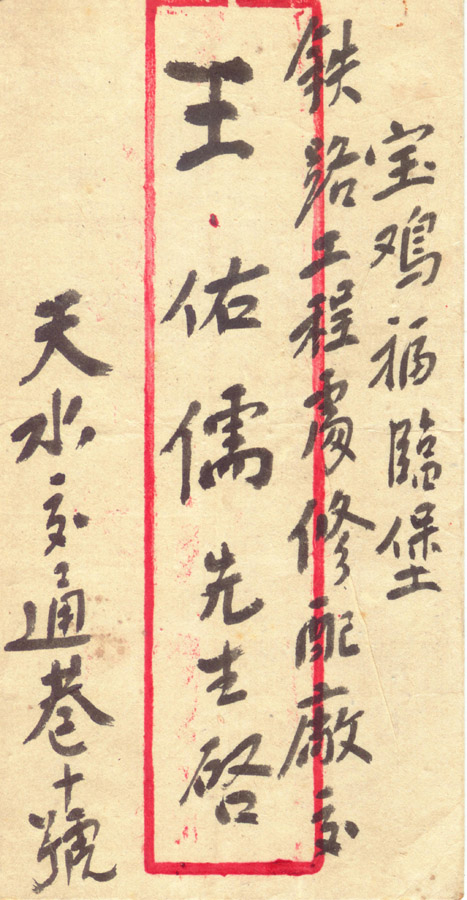 宝鸡福臨堡
鉄路工程處修配廠交
王佑儒先生啓
天水交通巷十號